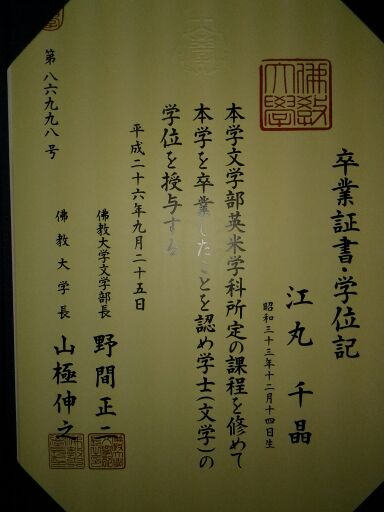 卒業証書・学位記
佛教大學
江丸 千晶
昭和三十三年十二月十四日生
本学文学部英米学科所定の課程を修めて
本学を卒業したことを認め学士(文学)の
学位を授与する
平成二十六年九月二十五日
佛教大学文学部長 野間正二
佛教大学長 山極伸之
第八六九九八号